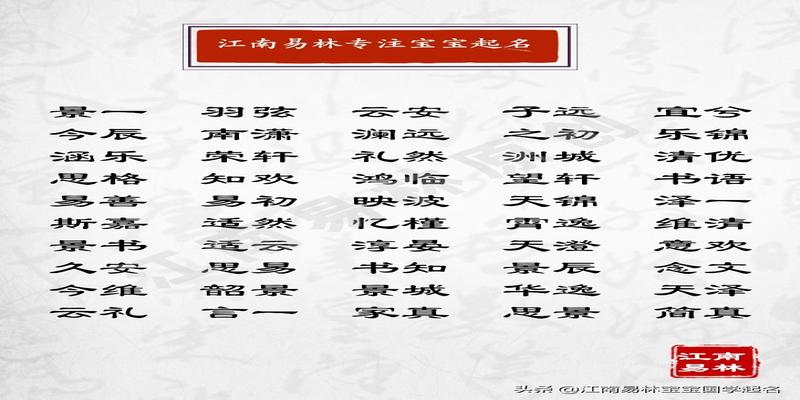 江南易林专注宝宝起名
景一 羽弦 云安 子远 宜兮
今辰 南潇 澜远 之初 乐锦
涵乐 荣轩 礼然 洲城 清优
思格 知欢 鸿临 望轩 书语
易善 易初 映波 天锦 泽一
斯嘉 适然 忆槿 霄逸 维清
景书 适云 淳晏 天澄 意欢
久安 思易 书知 景辰 念文
今维 韶景 景城 华逸 天泽
云礼 言一 家真 思景 简真
江南易林原创
江南
易林
头条 @江南易林宝宝国学起名